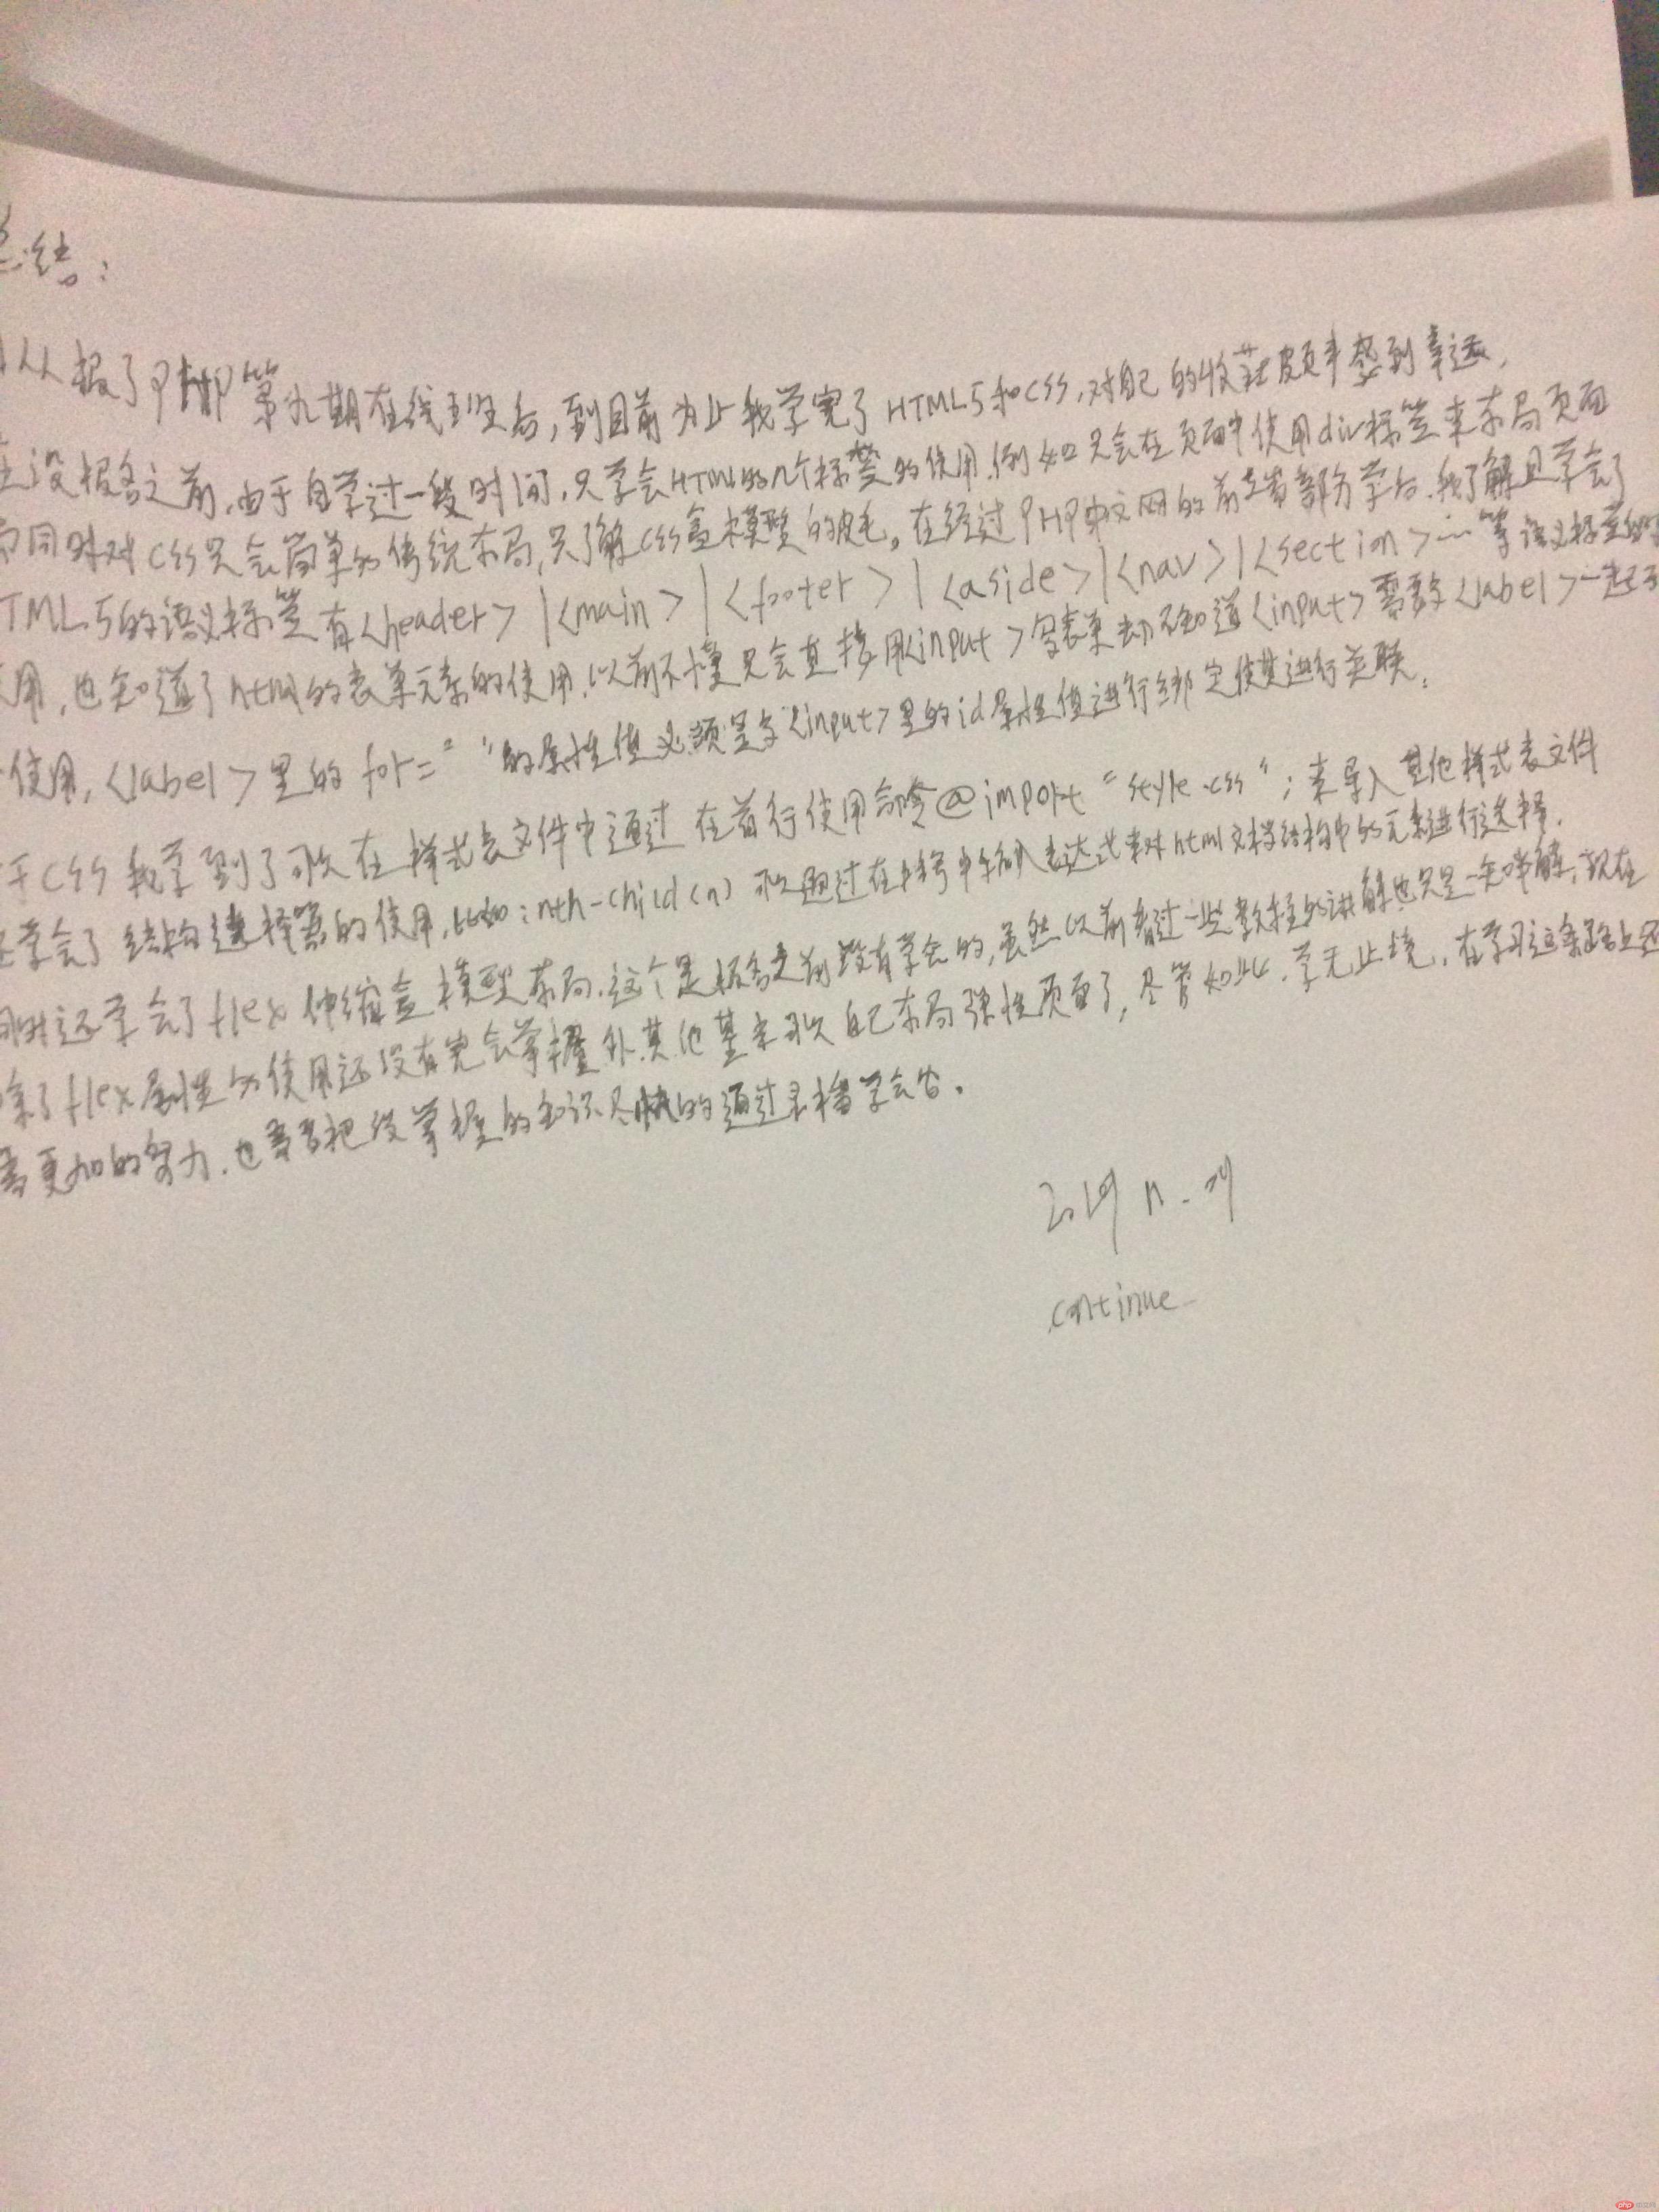 总结:
从报了PHP第九期在线班后,到目前为止我学完了HTML5和CSS,对自己的收获颇丰感到幸运,
在没报名之前,由于自学过一段时间,只学会HTML的几个标签的使用,例如只会在页面中使用div标签来布局页面
而同时对CSS只会简单的传统布局,只了解CSS盒模型的皮毛。在经过PHP中文网的前端部分学后,我了解且学会了
TML5的语义标签有<header>|<main>|<footer>|<aside>|<nav>|<section>……等语义标签的
用,也知道了html的表单元素的使用,以前不懂只会直接用<input>写表单却不知道<input>需要<label>一起
使用,<label>里的for=" "的属性值必须是与<input>里的id属性值进行绑定使其进行关联;
于CSS我学到了可以在样式表文件中通过在首行使用命令@import "style.css";来导入其他样式表文件
学会了结构选择器的使用,比如:nth-child(n)可以通过在括号中输入表达式来对html文档结构中的元素进行选择,
同时还学会了flex伸缩盒模型布局,这个是报名之前没有学会的,虽然以前看过一些教程的讲解也只是一知半解,现在
除了flex属性的使用还没有完全掌握外,其他基本可以自己布局弹性页面了,尽管如此,学无止境,在学习这条路上还
需更加的努力,也需要把没掌握的知识尽快的通过录播学会。
2019
continue